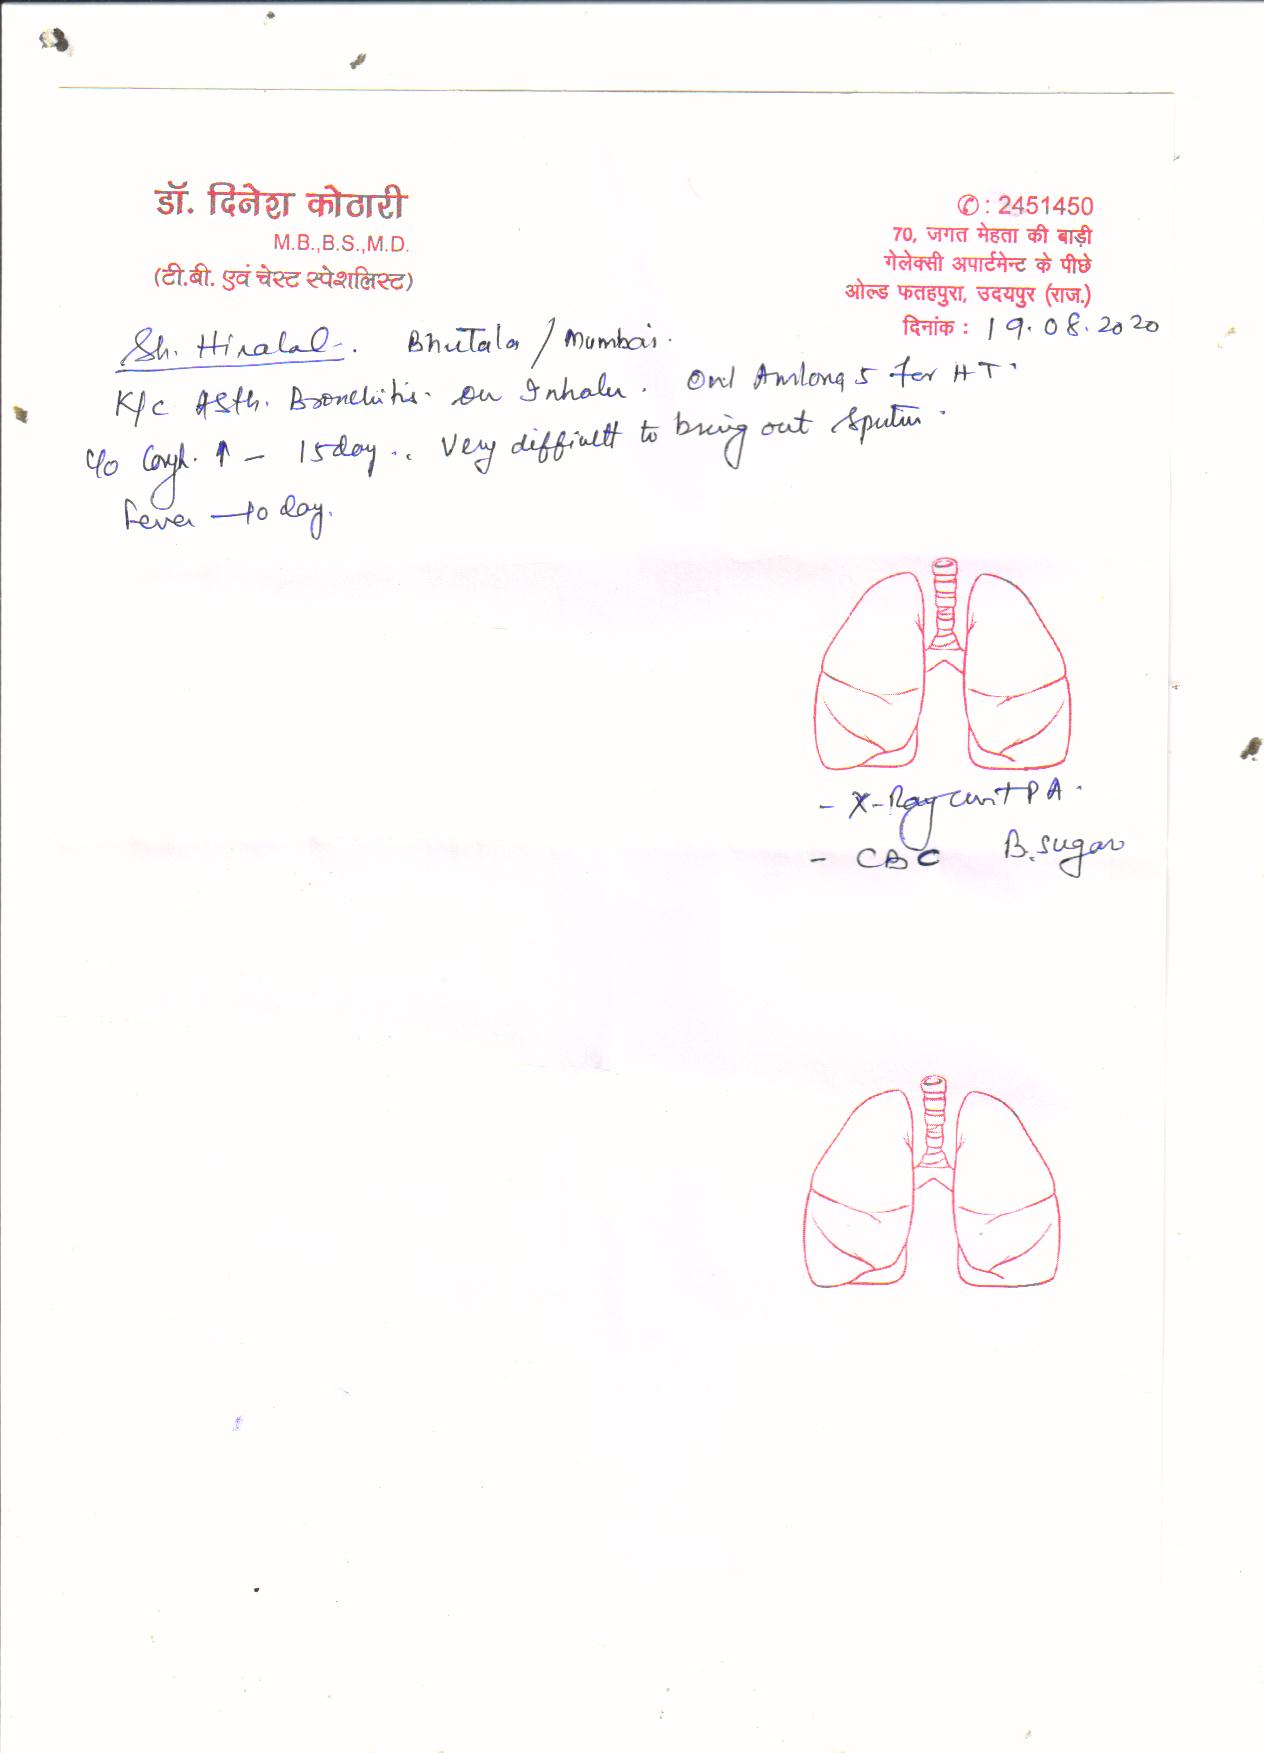 डॉ. दिनेश कोठारी
M.B.,B.S.,M.D.
(टी.बी. एवं चेस्ट स्पेशलिस्ट)
✆ : 2451450
70, जगत मेहता की बाड़ी
गेलेक्सी अपार्टमेन्ट के पीछे
ओल्ड फतहपुरा, उदयपुर (राज.)
दिनांक : 19.08.2020
Sh. Hiralal. Bhutala / Mumbai.
K/c Asth. Bronchitis. On Inhaler. Amlong 5 for HT.
c/o Cough ↑ - 15 day. Very difficult to bring out Sputum.
Fever - 10 day.
- X-Ray PA.
- CBC B. Sugar